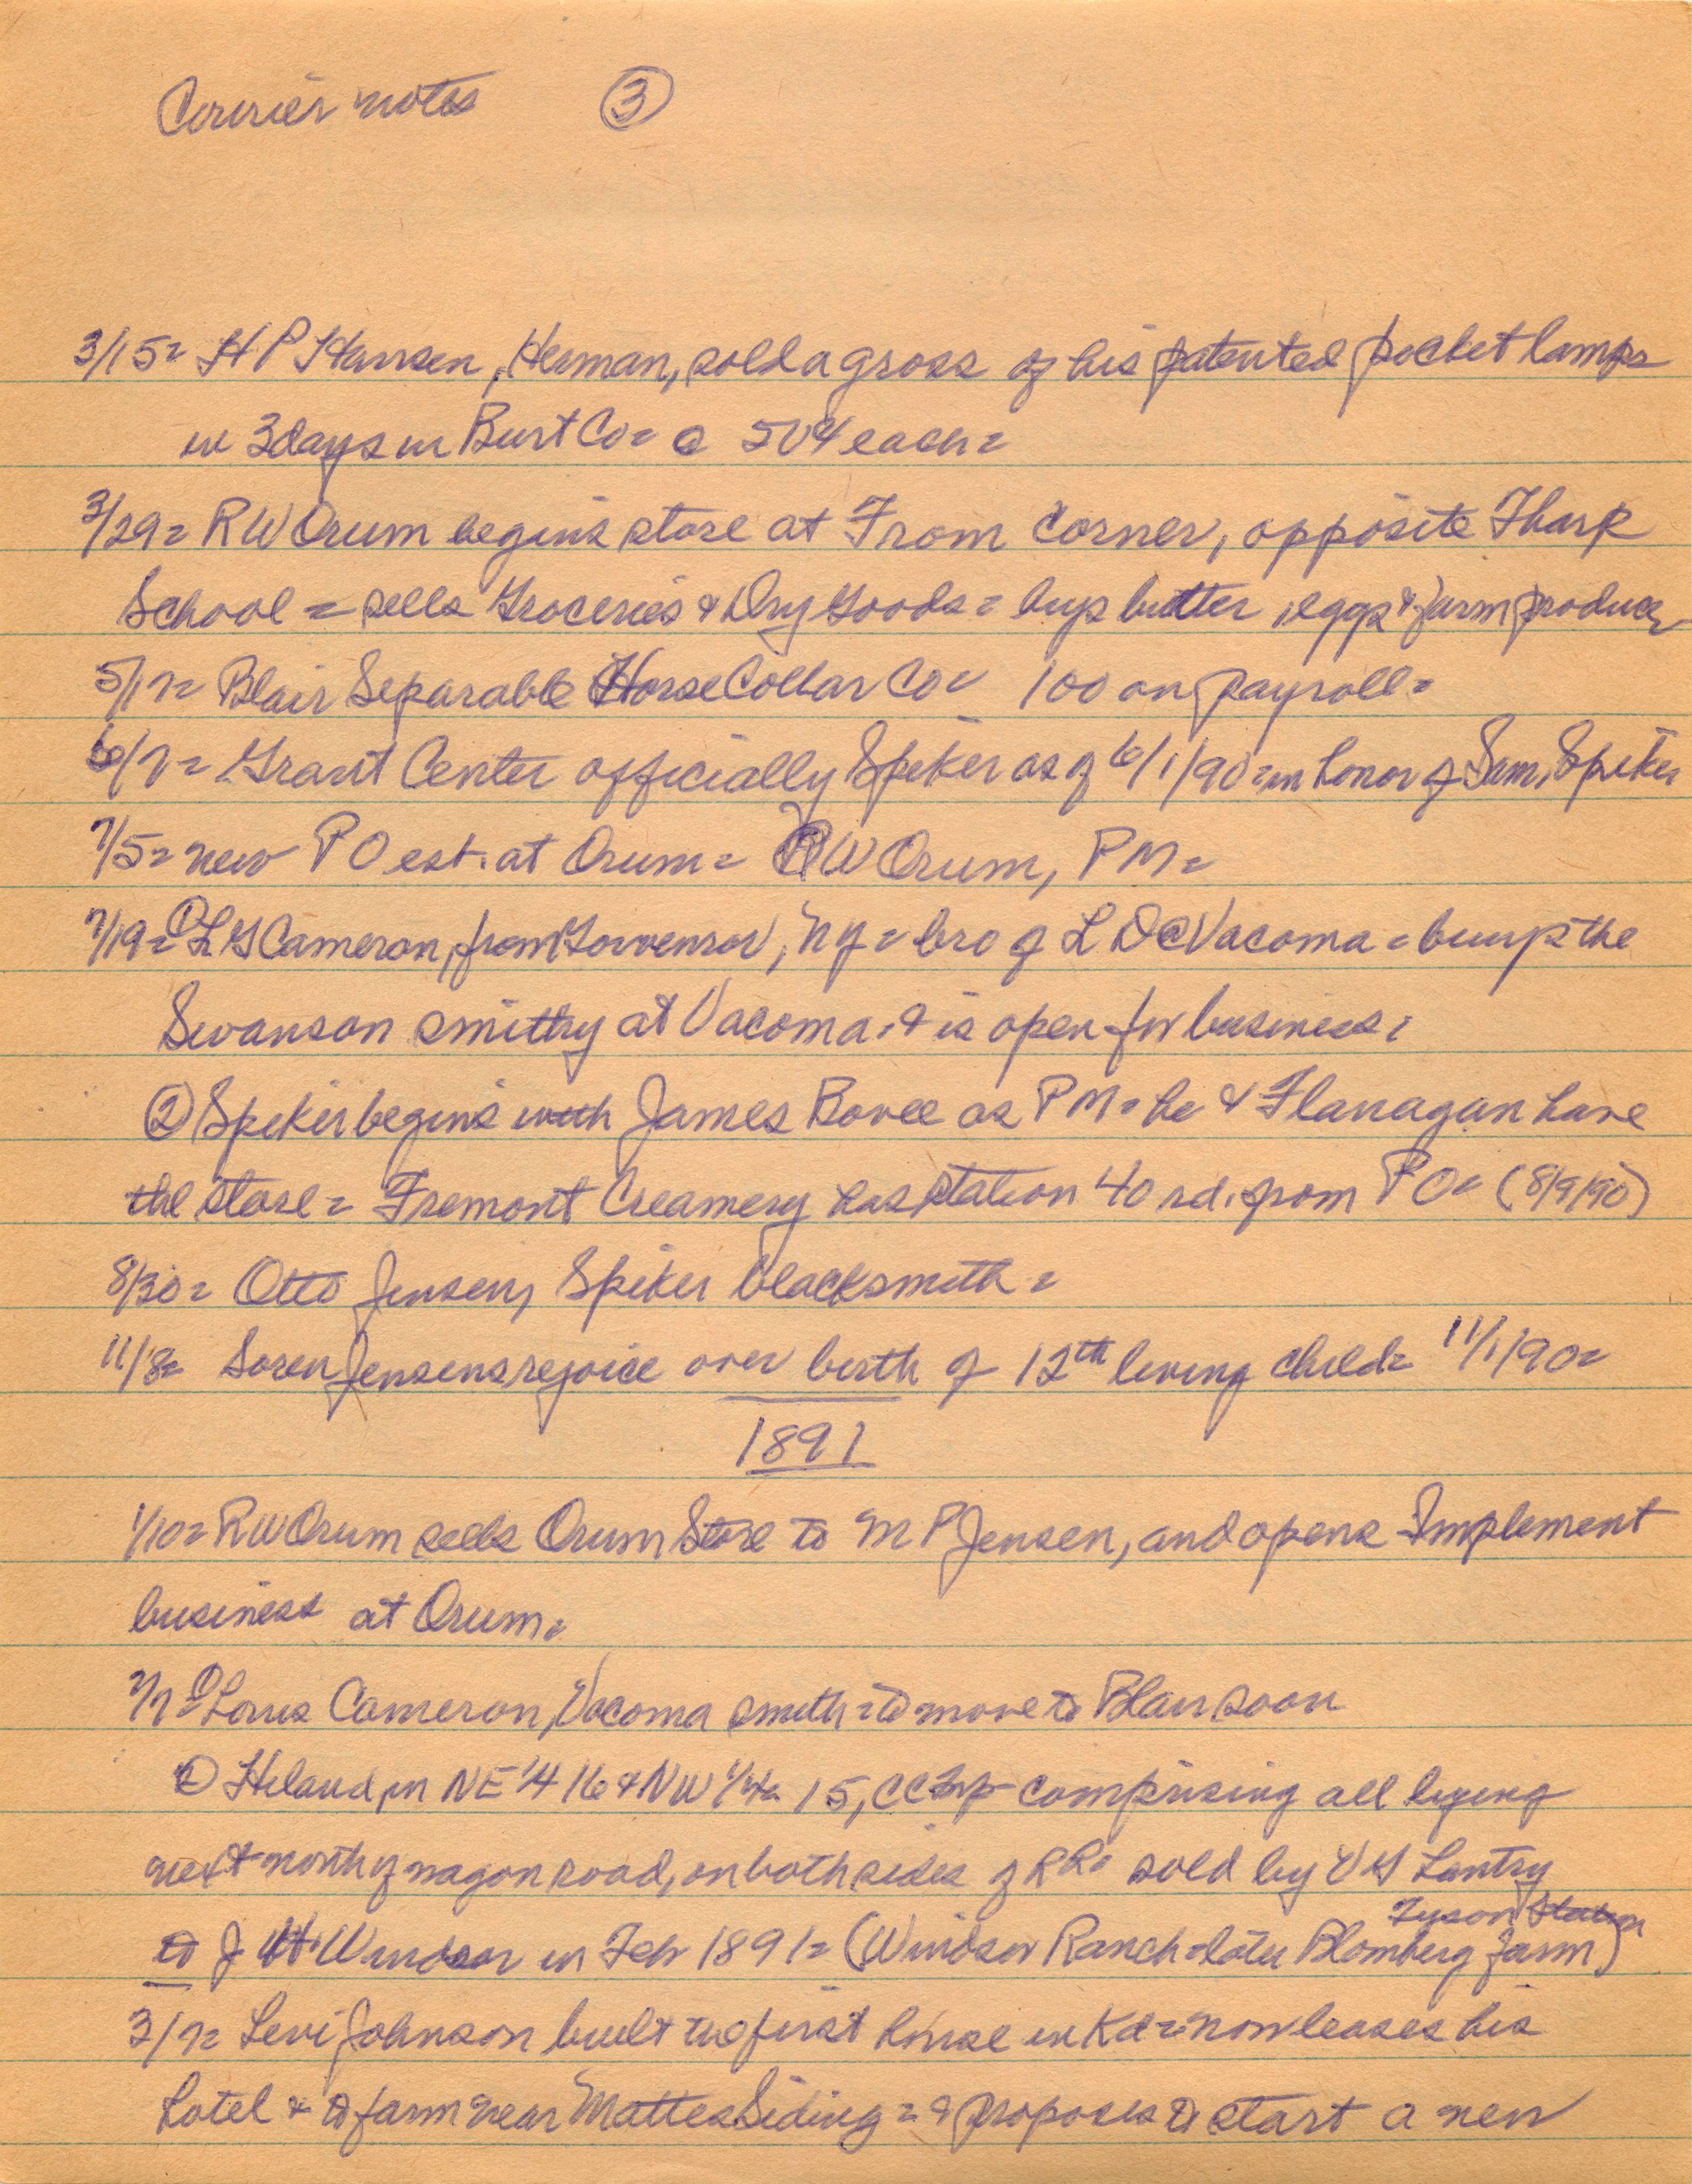 Courier notes ③
3/15= H P Hansen, Herman, sold a gross of his patented pocket lamps
in 3 days in Burt Co= @ 50¢ each=
3/29= RW Orum begins store at From Corner, opposite Tharp
School = sells Groceries & Dry Goods= buys butter, eggs & farm produce
5/17= Blair Separable Horse Collar Co= 100 on payroll=
6/7= Grant Center officially Spiker as of 6/1/90= in honor of Sam. Spiker
7/5= new PO est. at Orum= RW Orum, PM=
7/19= ① L G Cameron, from Govvensor, NY= bro of L D @ Vacoma= buys the
Swanson smithy at Vacoma. & is open for business=
② Spiker begins with James Bovee as PM= he & Flanagan have
the store= Fremont Creamery has station 40 rd. from PO= (8/9/90)
8/30= Otto Jensen, Spiker blacksmith=
11/8= Soren Jensens rejoice over birth of 12th living child= 11/1/90=
1891
1/10= RW Orum sells Orum Store to M P Jensen, and opens Implement
business at Orum=
2/7= ① Louis Cameron, Vacoma smith= to move to Blair soon
② land in NE 1/4 16 & NW 1/4 15, CC Twp comprising all lying
next north of wagon road, on both sides of RR= sold by V G Lantry
Tyson Station
to J H Windsor in Feb 1891= (Windsor Ranch= later Blomberg farm)
3/7= Levi Johnson built the first house in Kd= now leases his
hotel & to farm near Mattes Siding= & proposes to start a new